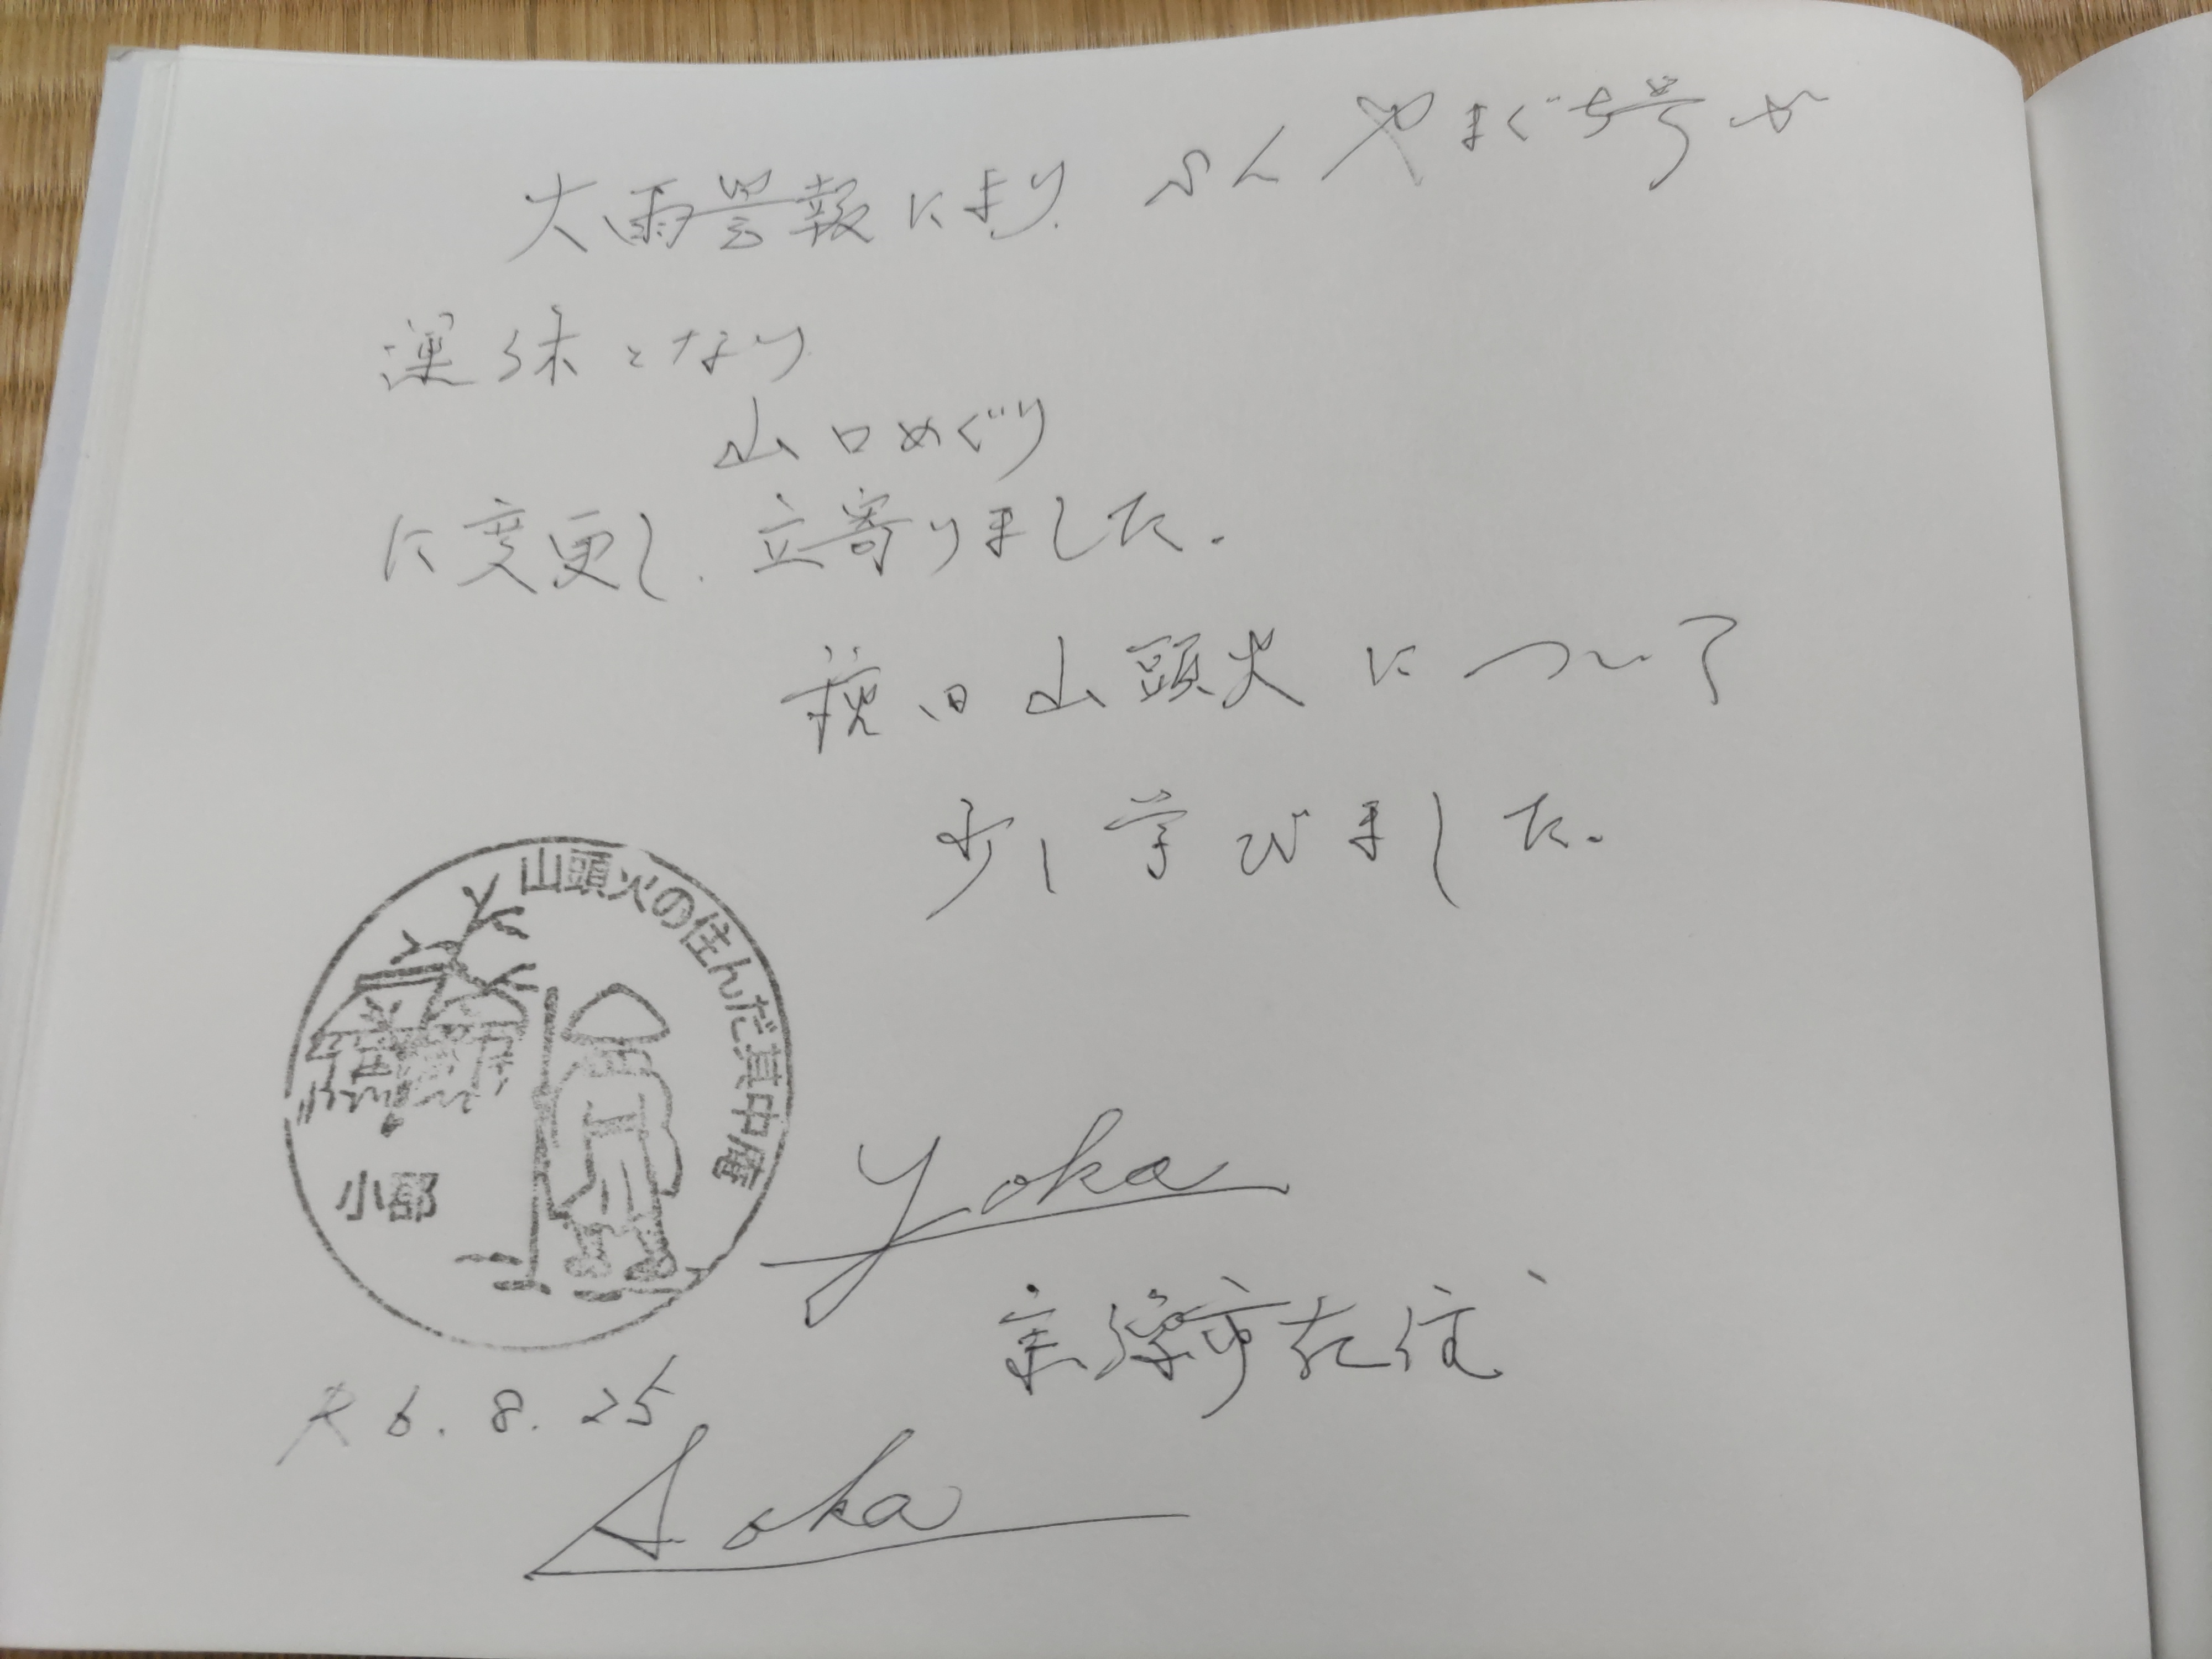 大雨警報により SL やまぐち号が
運休となり
山口めぐり
に変更し、立寄りました。
種田山頭火について
少し学びました。
山頭火の住んだ其中庵
小郡
Yoka
宗像市在住
R6.8.25
Soka